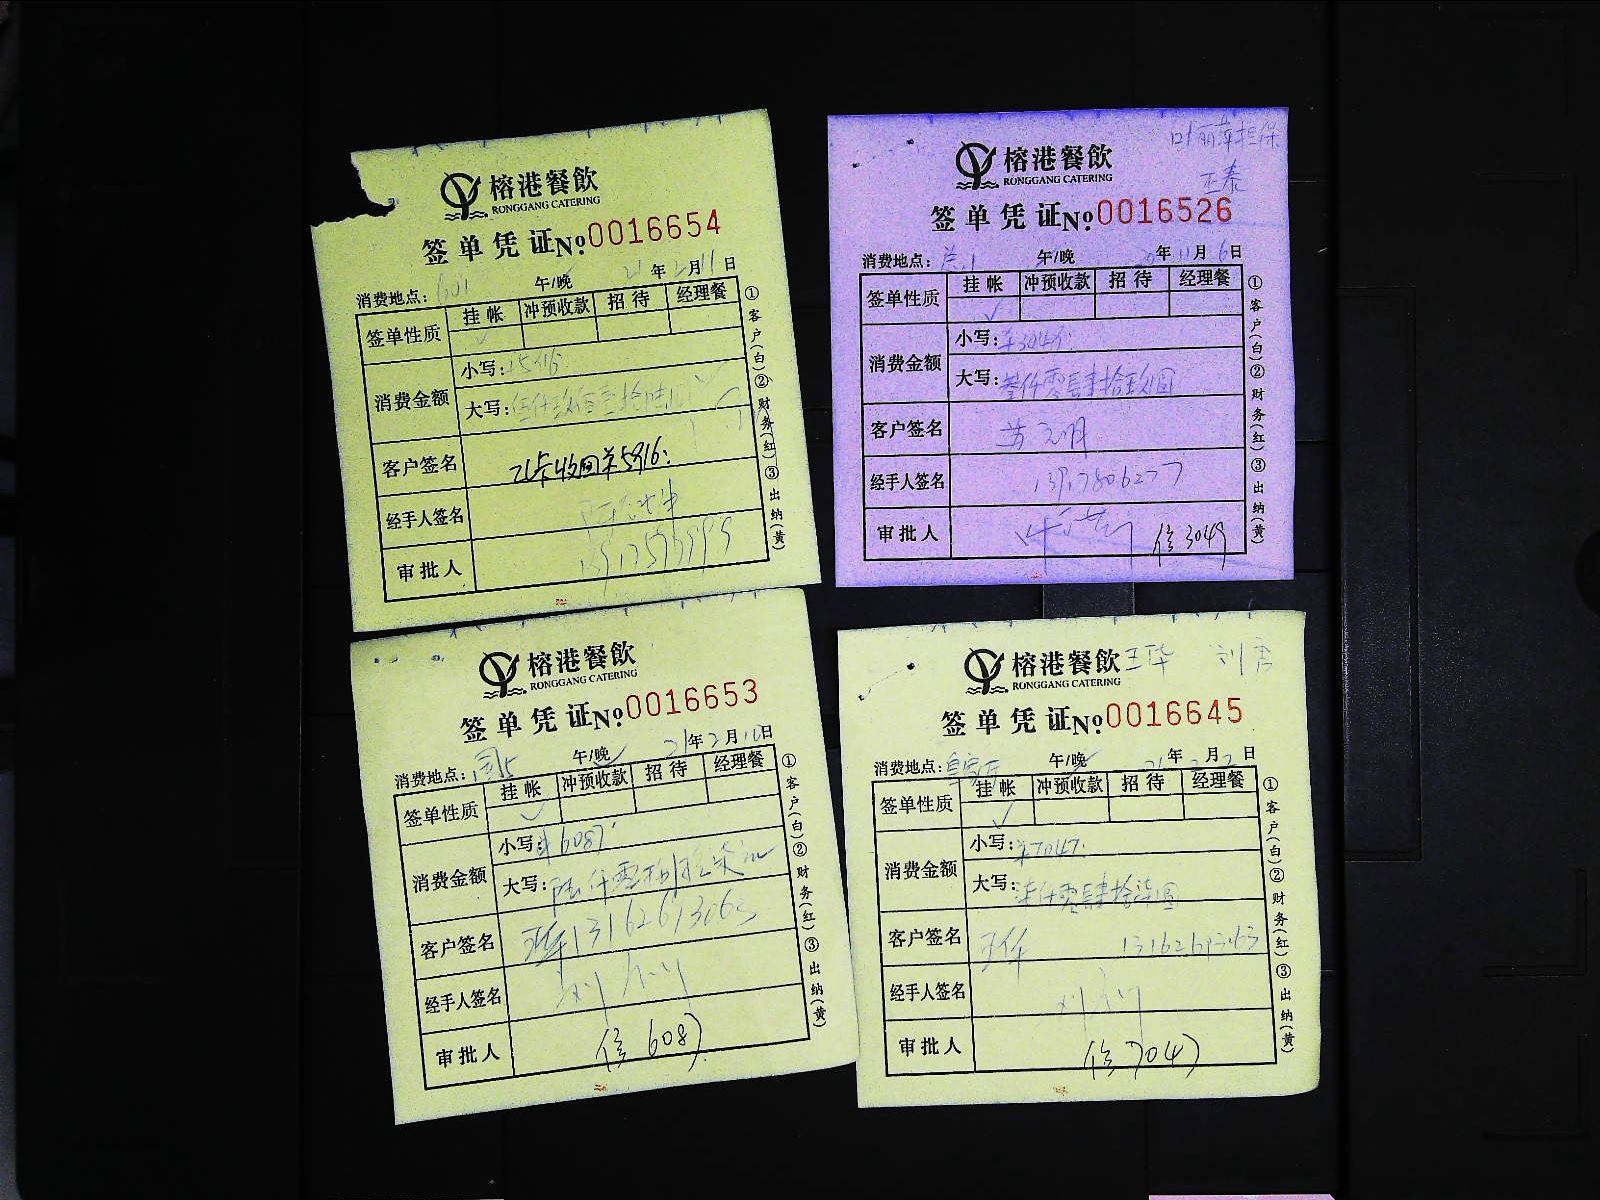 榕港餐飲
RONGGANG CATERING
签单凭证 No. 0016654
消费地点: 601 午/晚 21年2月11日
签单性质 挂帐 冲预收款 招待 经理餐
消费金额 小写: 5916.
大写: 伍仟玖佰壹拾陆元
客户签名 收回羊5916.
经手人签名
审批人
①客户(白)②财务(红)③出纳(黄)
榕港餐飲
RONGGANG CATERING
担保
正泰
签单凭证 No. 0016526
消费地点: 午/晚 20年11月6日
签单性质 挂帐 冲预收款 招待 经理餐
✓
消费金额 小写: ¥3049.
大写: 叁仟零肆拾玖圆
客户签名
经手人签名 13917806277
审批人 信3049
①客户(白)②财务(红)③出纳(黄)
榕港餐飲
RONGGANG CATERING
签单凭证 No. 0016653
消费地点: 国5 午/晚 21年2月10日
签单性质 挂帐 冲预收款 招待 经理餐
✓
消费金额 小写: ¥6087.
大写: 陆仟零捌拾柒元
客户签名 王华 13162693063
经手人签名 刘
审批人 信6087.
①客户(白)②财务(红)③出纳(黄)
榕港餐飲 王华 刘
RONGGANG CATERING
签单凭证 No. 0016645
消费地点: 皇家厅 午/晚 21年2月2日
签单性质 挂帐 冲预收款 招待 经理餐
✓
消费金额 小写: ¥7047.
大写: 柒仟零肆拾柒圆
客户签名 王华 13162693063
经手人签名 刘
审批人 信7047
①客户(白)②财务(红)③出纳(黄)